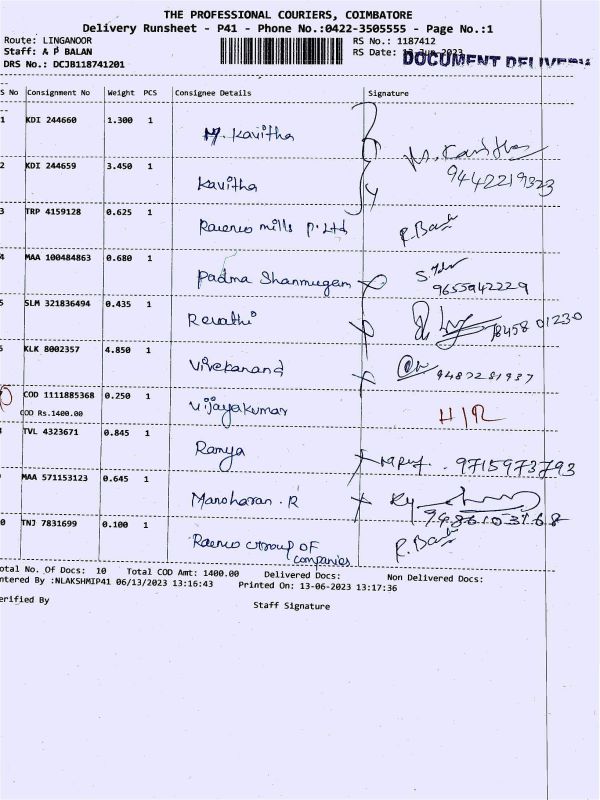 THE PROFESSIONAL COURIERS, COIMBATORE
Delivery Runsheet - P41 - Phone No.:0422-3505555 - Page No.:1
Route: LINGANOOR
RS No.: 1187412
Staff: A P BALAN
RS Date: 13 Jun 2023
DOCUMENT DELIVERY
DRS No.: DCJB118741201
S No Consignment No Weight PCS Consignee Details Signature
1 KDI 244660 1.300 1 M. Kavitha M. Kavitha
9442219323
2 KDI 244659 3.450 1 Kavitha
3 TRP 4159128 0.625 1 mills P. Ltd
4 MAA 100484863 0.680 1 Padma Shanmugam
9655942229
5 SLM 321836494 0.435 1 Revathi 01230
KLK 8002357 4.850 1 Vivekanand
COD 1111885368 0.250 1 Vijayakumar H/R
COD Rs.1400.00
TVL 4323671 0.845 1 Ramya 9715973793
MAA 571153123 0.645 1 Manoharan . R
9486103168
0 TNJ 7831699 0.100 1 Group OF
companies
otal No. Of Docs: 10 Total COD Amt: 1400.00 Delivered Docs: Non Delivered Docs:
ntered By :NLAKSHMIP41 06/13/2023 13:16:43 Printed On: 13-06-2023 13:17:36
erified By Staff Signature